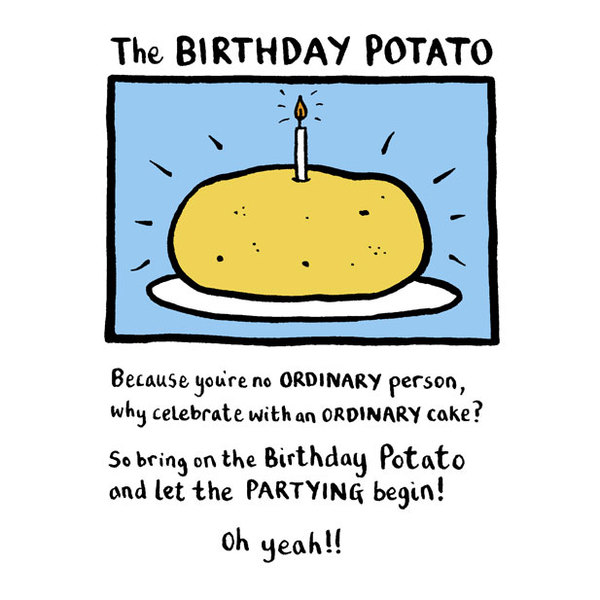 The BIRTHDAY POTATO
Because you're no ORDINARY person,
why celebrate with an ORDINARY cake?
So bring on the Birthday Potato
and let the PARTYING begin!
Oh yeah!!